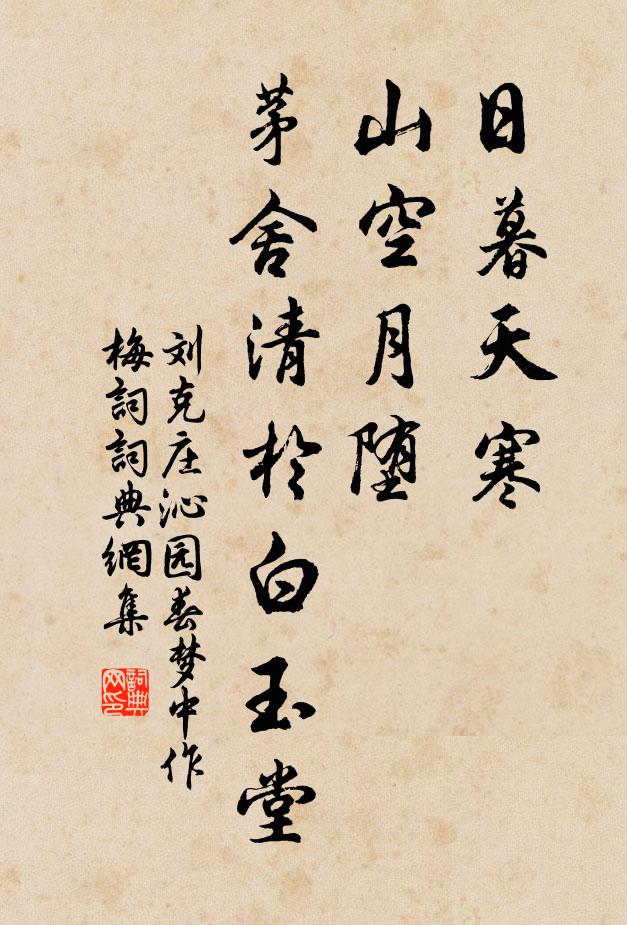 日暮天寒
山空月堕
茅舍清於白玉堂
刘克庄沁园春梦中作
梅詞詞典網集
詞典
网印